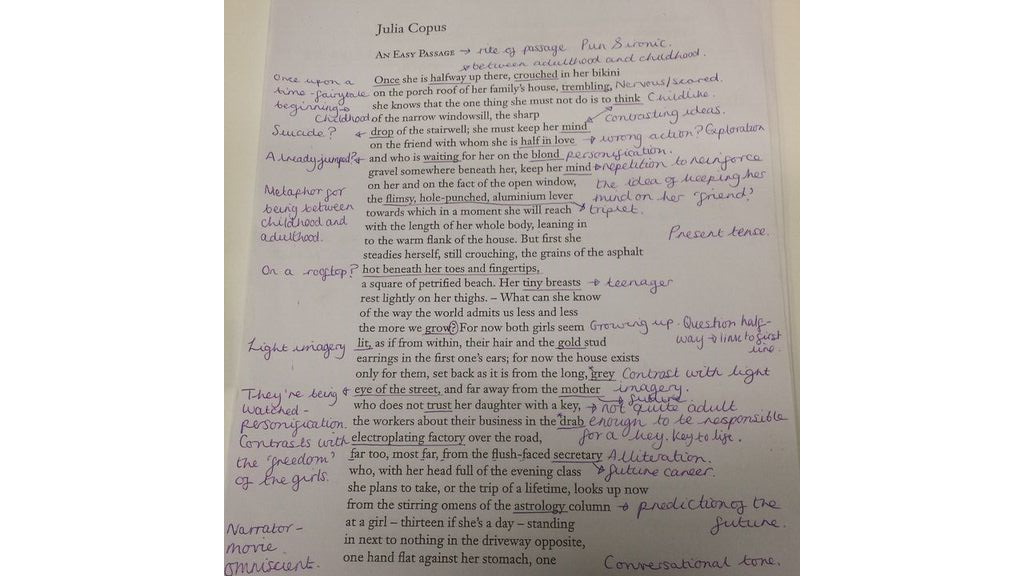 Julia Copus
AN EASY PASSAGE → rite of passage Pun & ironic.
* between adulthood and childhood.
Once upon a
time - fairytale
beginning →
Childhood
Suicide?
Already jumped?
Metaphor for
being between
childhood and
adulthood.
On a rooftop?
Light imagery
They're being
watched -
personification.
Contrasts with
the 'freedom'
of the girls.
Narrator -
movie.
omniscient.
Once she is halfway up there, crouched in her bikini
on the porch roof of her family's house, trembling, Nervous/scared.
she knows that the one thing she must not do is to think Childlike.
of the narrow windowsill, the sharp
contrasting ideas.
drop of the stairwell; she must keep her mind
on the friend with whom she is half in love → wrong action? Exploration
and who is waiting for her on the blond personification.
gravel somewhere beneath her, keep her mind → repetition to reinforce
on her and on the fact of the open window, the idea of keeping her
the flimsy, hole-punched, aluminium lever mind on her 'friend'.
towards which in a moment she will reach → triplet.
with the length of her whole body, leaning in
to the warm flank of the house. But first she Present tense.
steadies herself, still crouching, the grains of the asphalt
hot beneath her toes and fingertips,
a square of petrified beach. Her tiny breasts → teenager
rest lightly on her thighs. – What can she know
of the way the world admits us less and less
the more we grow? For now both girls seem Growing up. Question half-
way → link to first
line.
lit, as if from within, their hair and the gold stud
earrings in the first one's ears; for now the house exists
only for them, set back as it is from the long, grey Contrast with light
eye of the street, and far away from the mother imagery.
→ future
who does not trust her daughter with a key, → not quite adult
the workers about their business in the drab enough to be responsible
electroplating factory over the road, for a key. Key to life.
far too, most far, from the flush-faced secretary Alliteration.
who, with her head full of the evening class → future career.
she plans to take, or the trip of a lifetime, looks up now
from the stirring omens of the astrology column → prediction of the
future.
at a girl – thirteen if she's a day – standing
in next to nothing in the driveway opposite,
one hand flat against her stomach, one Conversational tone.